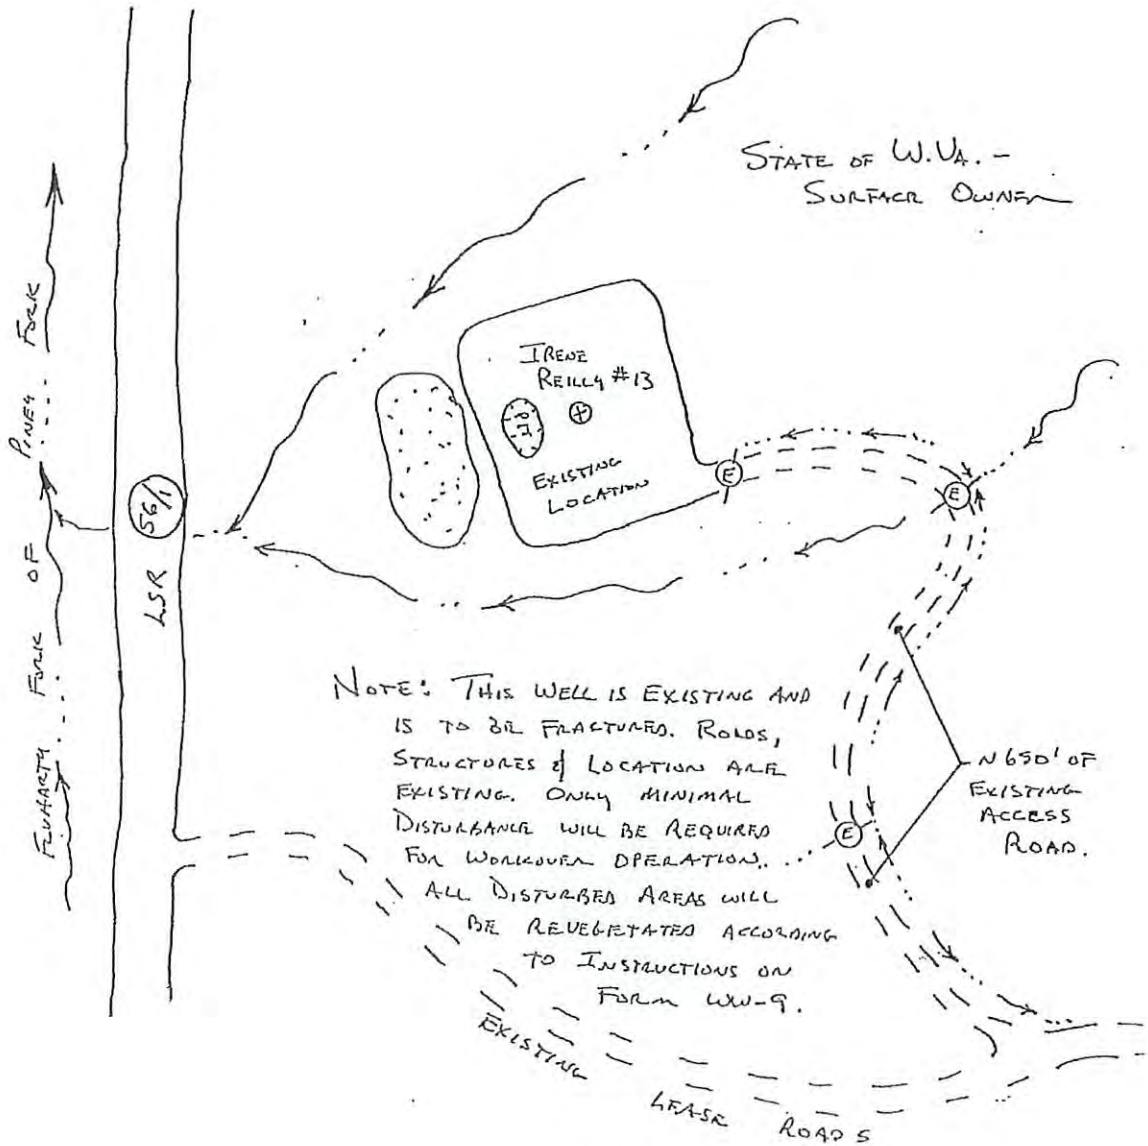 STATE OF W.VA. -
SURFACE OWNER
FLUHARTY FORK OF PINEY FORK
56/1
LSR
IRENE
REILLY #13
PIT
EXISTING
LOCATION
E
E
E
NOTE: THIS WELL IS EXISTING AND
IS TO BE FRACTURED. ROADS,
STRUCTURES & LOCATION ARE
EXISTING. ONLY MINIMAL
DISTURBANCE WILL BE REQUIRED
FOR WORKOVER OPERATION.
ALL DISTURBED AREAS WILL
BE REVEGETATED ACCORDING
TO INSTRUCTIONS ON
FORM WW-9.
~650' OF
EXISTING
ACCESS
ROAD.
EXISTING LEASE ROADS